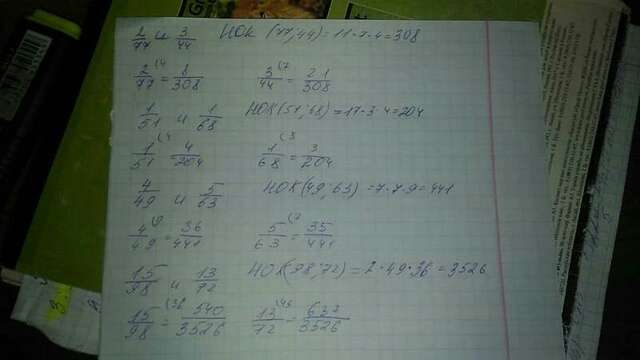 2/77 и 3/44 НОК (77,44) = 11·7·4=308
2/77 (4 = 8/308 3/44 (7 = 21/308
1/51 и 1/68 НОК(51,68) = 17·3·4=204
1/51 (4 4/204 1/68 (3 = 3/204
4/49 и 5/63 НОК(49,63) =7·7·9=441
4/49 (9 = 36/441 5/63 (7 = 35/441
15/98 и 13/72 НОК(98,72) = 2·49·36=3526
15/98 (36 = 540/3526 13/72 (49 = 637/3526